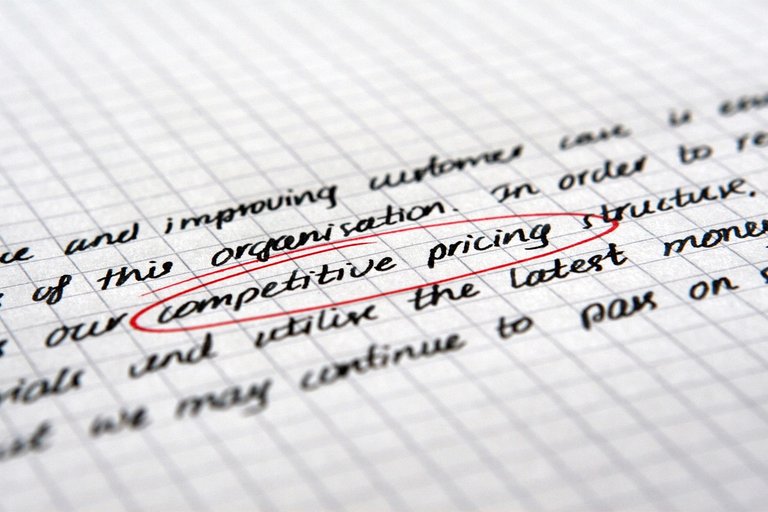 and improving customer care is
of this organisation. In order to
our competitive pricing structure.
and utilise the latest money
we may continue to pass on